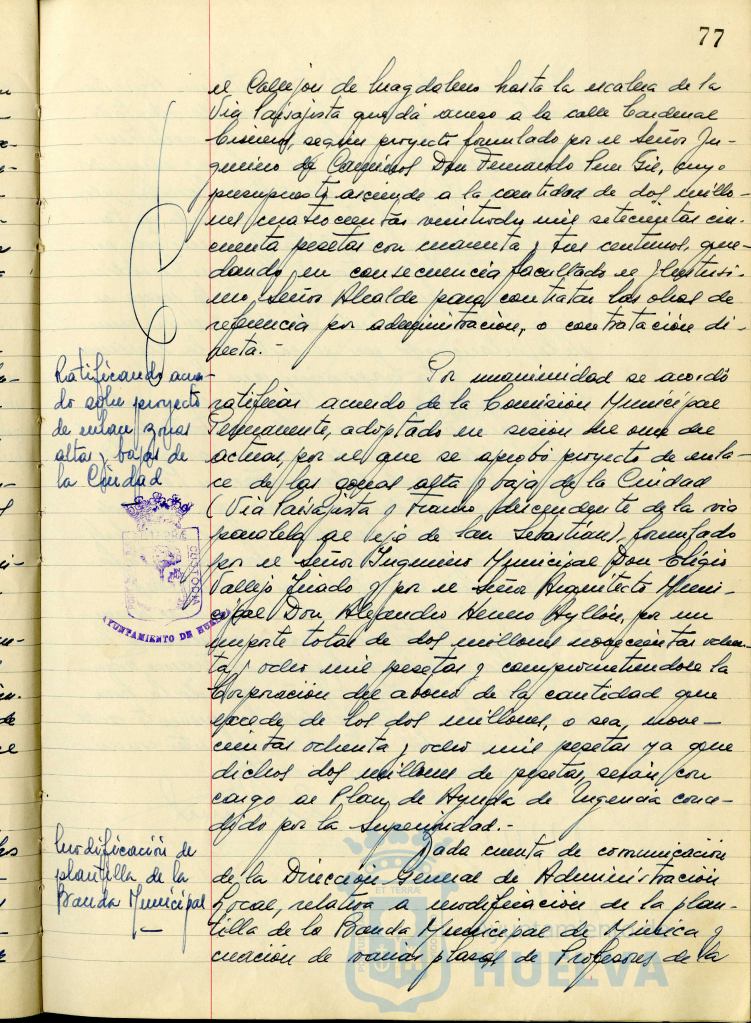 77
el Callejón de Magdalena hasta la escalera de la
Via Paisajista que dá acceso a la calle Cardenal
Cisneros, según proyecto formulado por el señor In-
geniero de Caminos Don Fernando Gil, cuyo
presupuesto asciende a la cantidad de dos millo-
nes cuatrocientas veintiocho mil setecientas cin-
cuenta pesetas con y tres centimos, que-
dando en consecuencia facultado el Ilustrisi-
mo señor Alcalde para contratar las obras de
referencia por administración, o contratación di-
recta.-
Ratificando acuer-
do sobre proyecto
de enlace zonas
altas y bajas de
la Ciudad
Por unanimidad se acordó
ratificar acuerdo de la Comisión Municipal
Permanente, adoptado en sesión de once del
actual, por el que se aprobó proyecto de enla-
ce de las zonas alta y baja de la Ciudad
(Via Paisajista y Tramo descendente de la via
paralela al eje de San Sebastián), formulado
por el señor Ingeniero Municipal Don Eligio
Vallejo y por el señor Arquitecto Muni-
cipal Don Alejandro Herrero Ayllón, por un
importe total de dos millones novecientas ochen-
ta y ocho mil pesetas y comprometiendose la
Corporación del abono de la cantidad que
excede de los dos millones, o sea, nove-
cientas ochenta y ocho mil pesetas ya que
dichos dos millones de pesetas, serán con
cargo al Plan de Ayuda de Urgencia conce-
dido por la Superioridad.-
AYUNTAMIENTO DE HUELVA
Modificación de
plantilla de la
Banda Municipal
Dada cuenta de comunicación
de la Dirección General de Administración
Local, relativa a modificación de la plan-
tilla de la Banda Municipal de Musica y
creación de varias plazas de Profesores de la
HUELVA